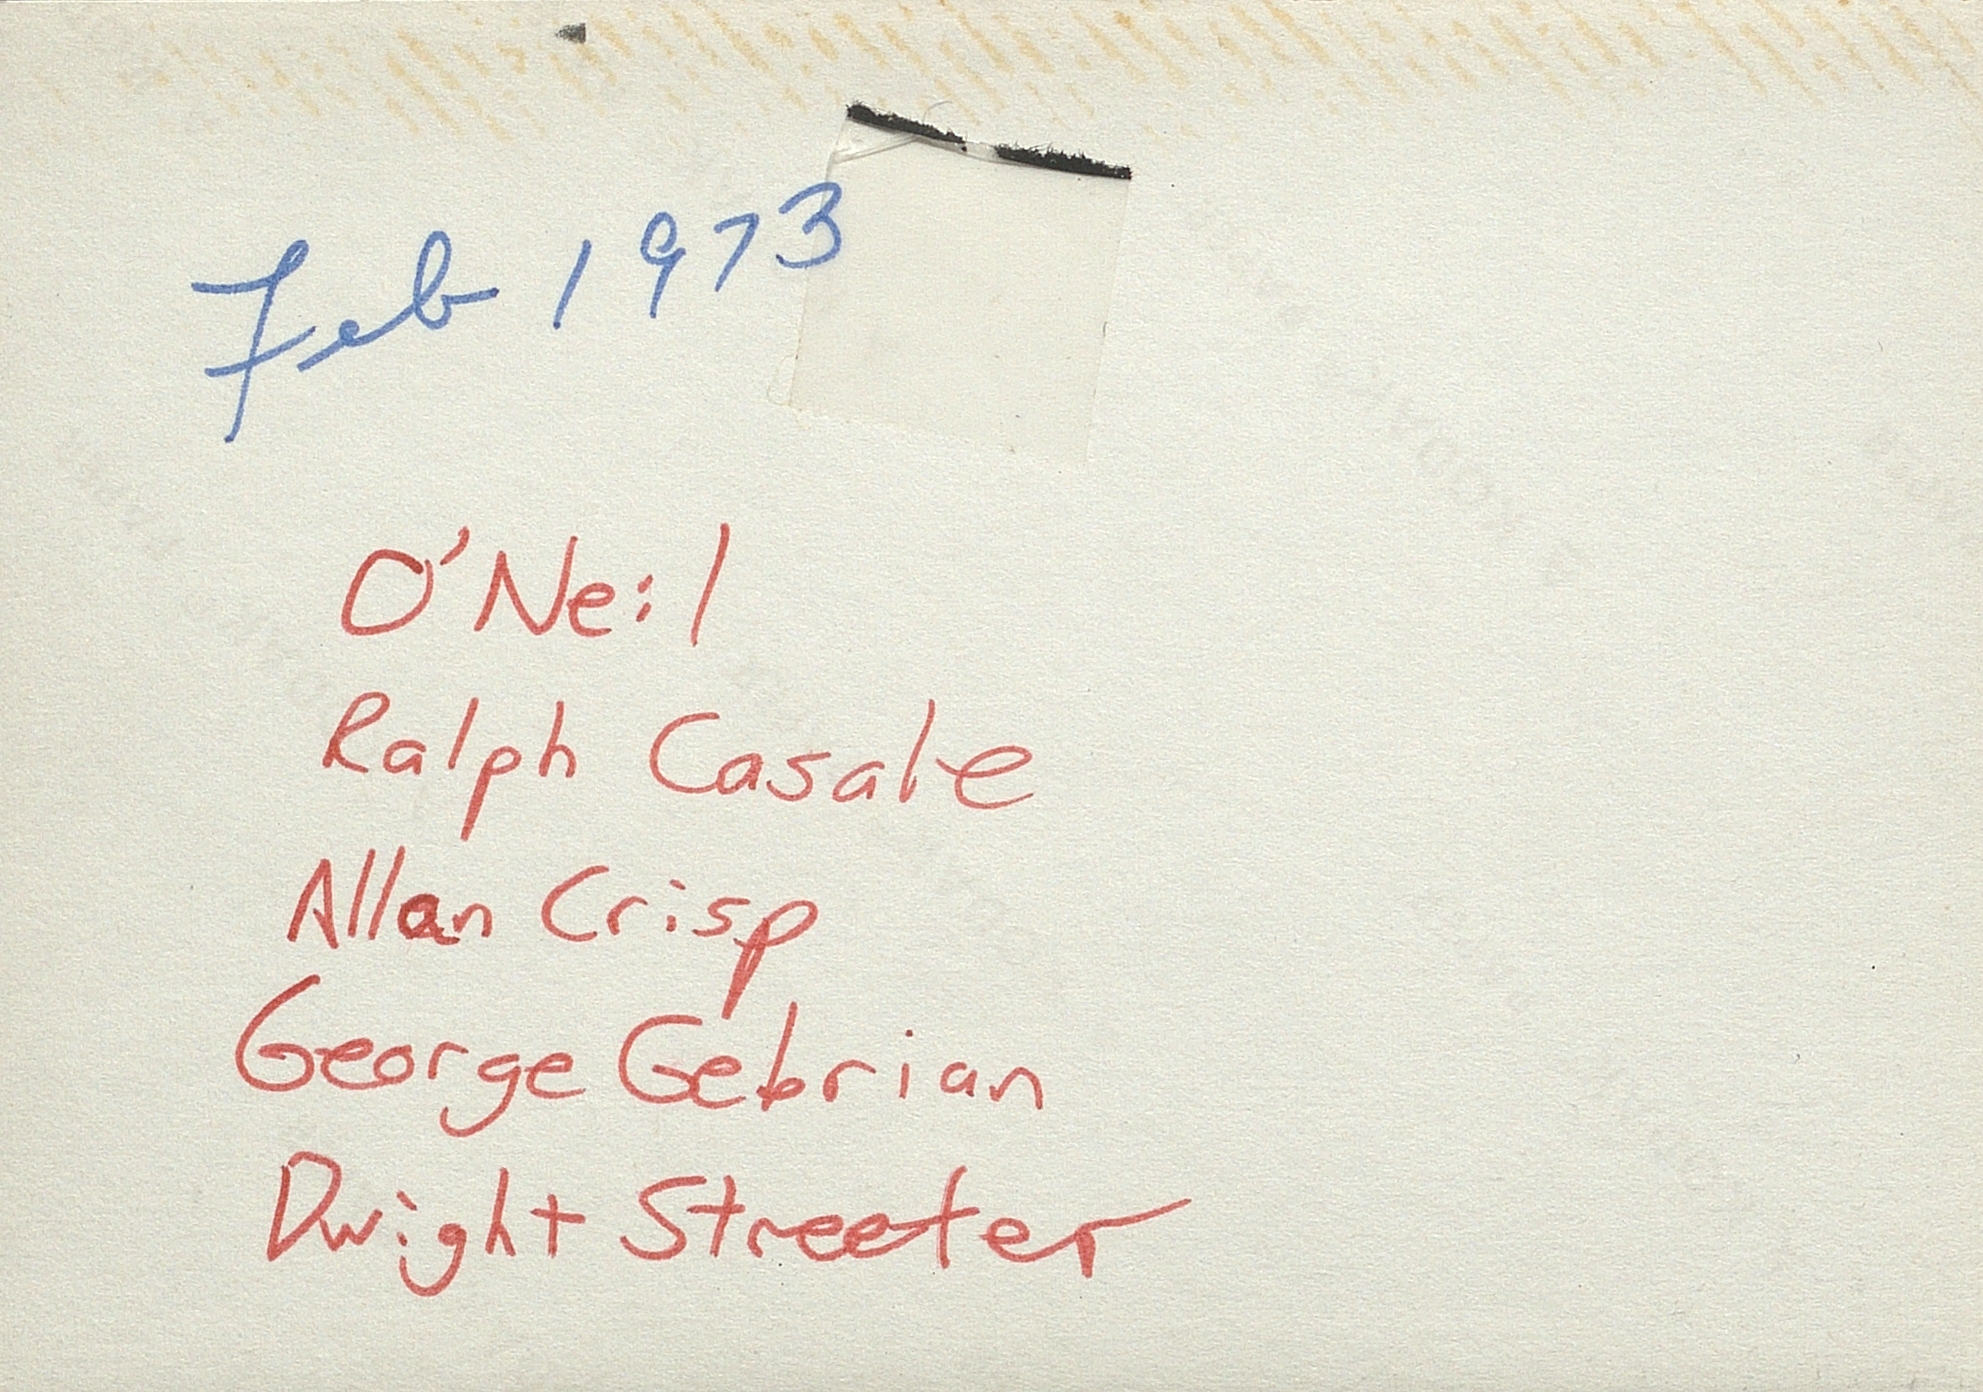 Feb 1973
O'Neil
Ralph Casale
Allan Crisp
George Gebrian
Dwight Streeter